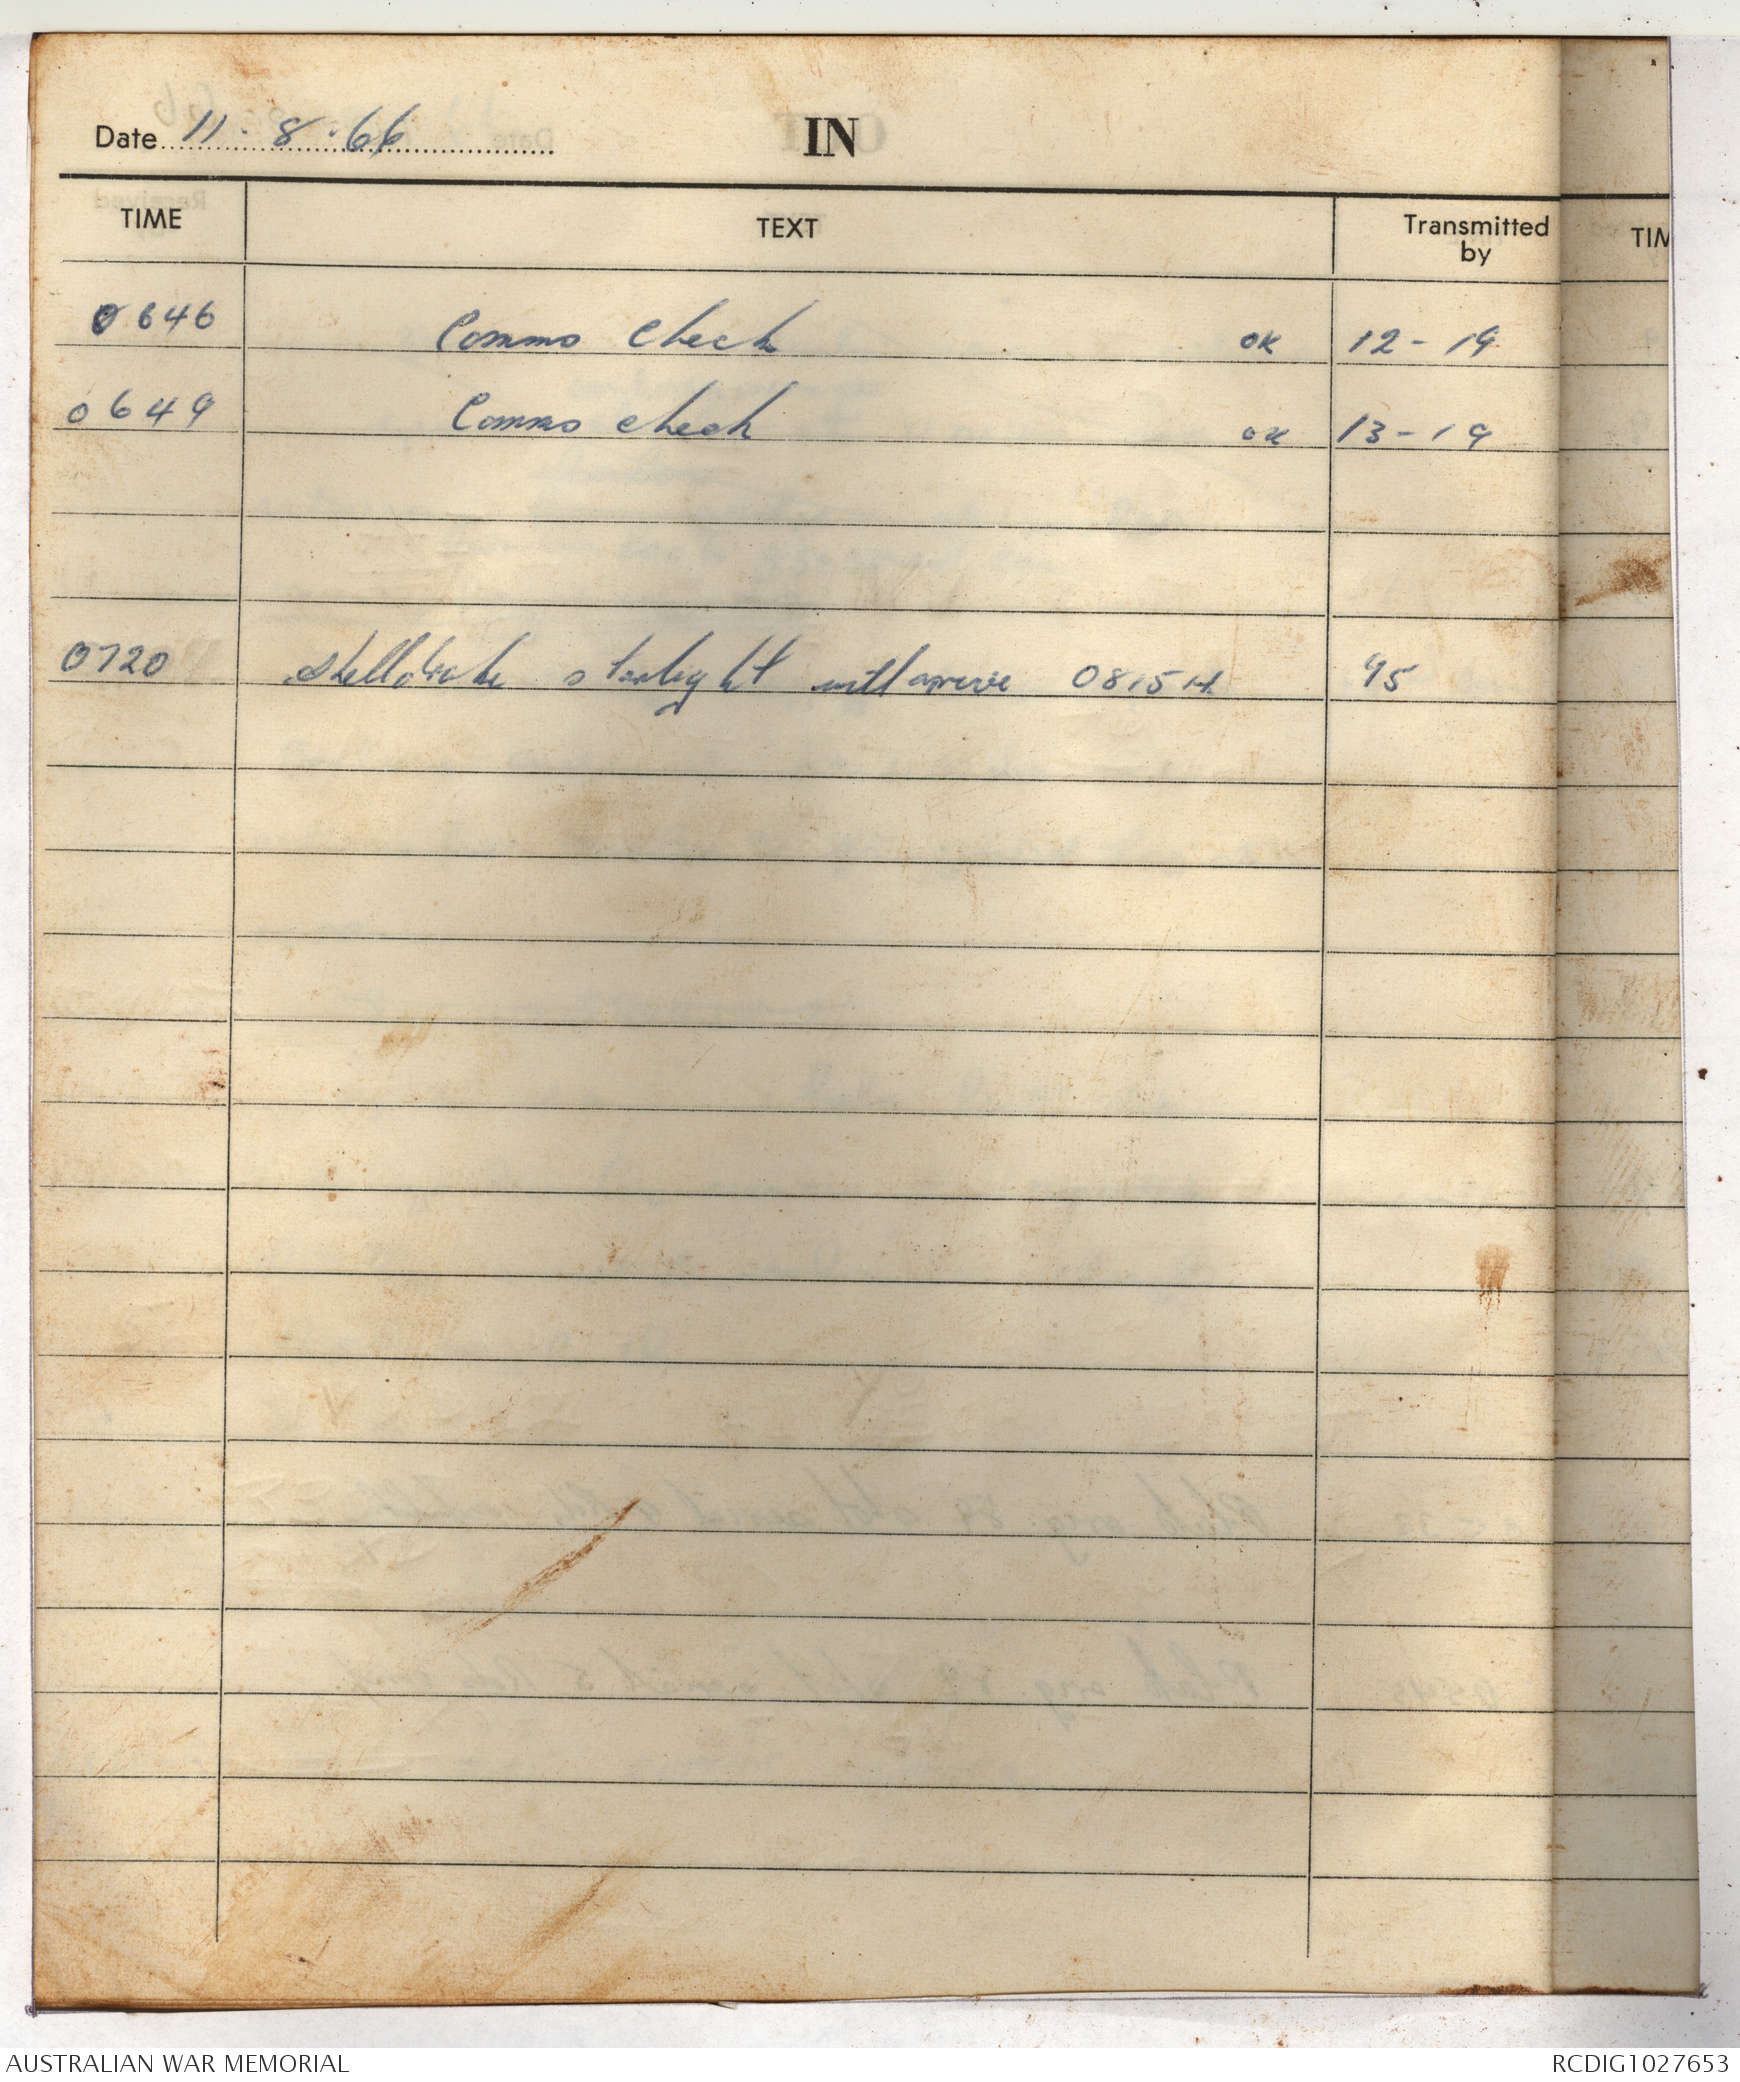 Date 11.8.66
IN
TIME TEXT Transmitted by
0646 Comms Check OK 12-19
0649 Comms check OK 13-19
0720 shelldrake starlight will arrive 0815H 95
TIM
AUSTRALIAN WAR MEMORIAL RCDIG1027653